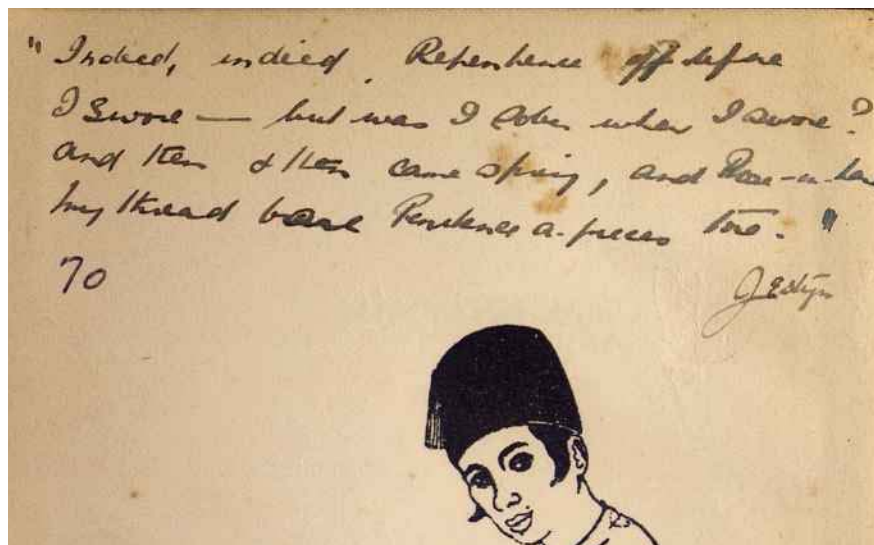 "Indeed, indeed, Repentence oft before
I swore — but was I sober when I swore?
and then & then came spring, and Rose-in-han
my thread bare Penitence a-pieces tore."
70
JEstyn